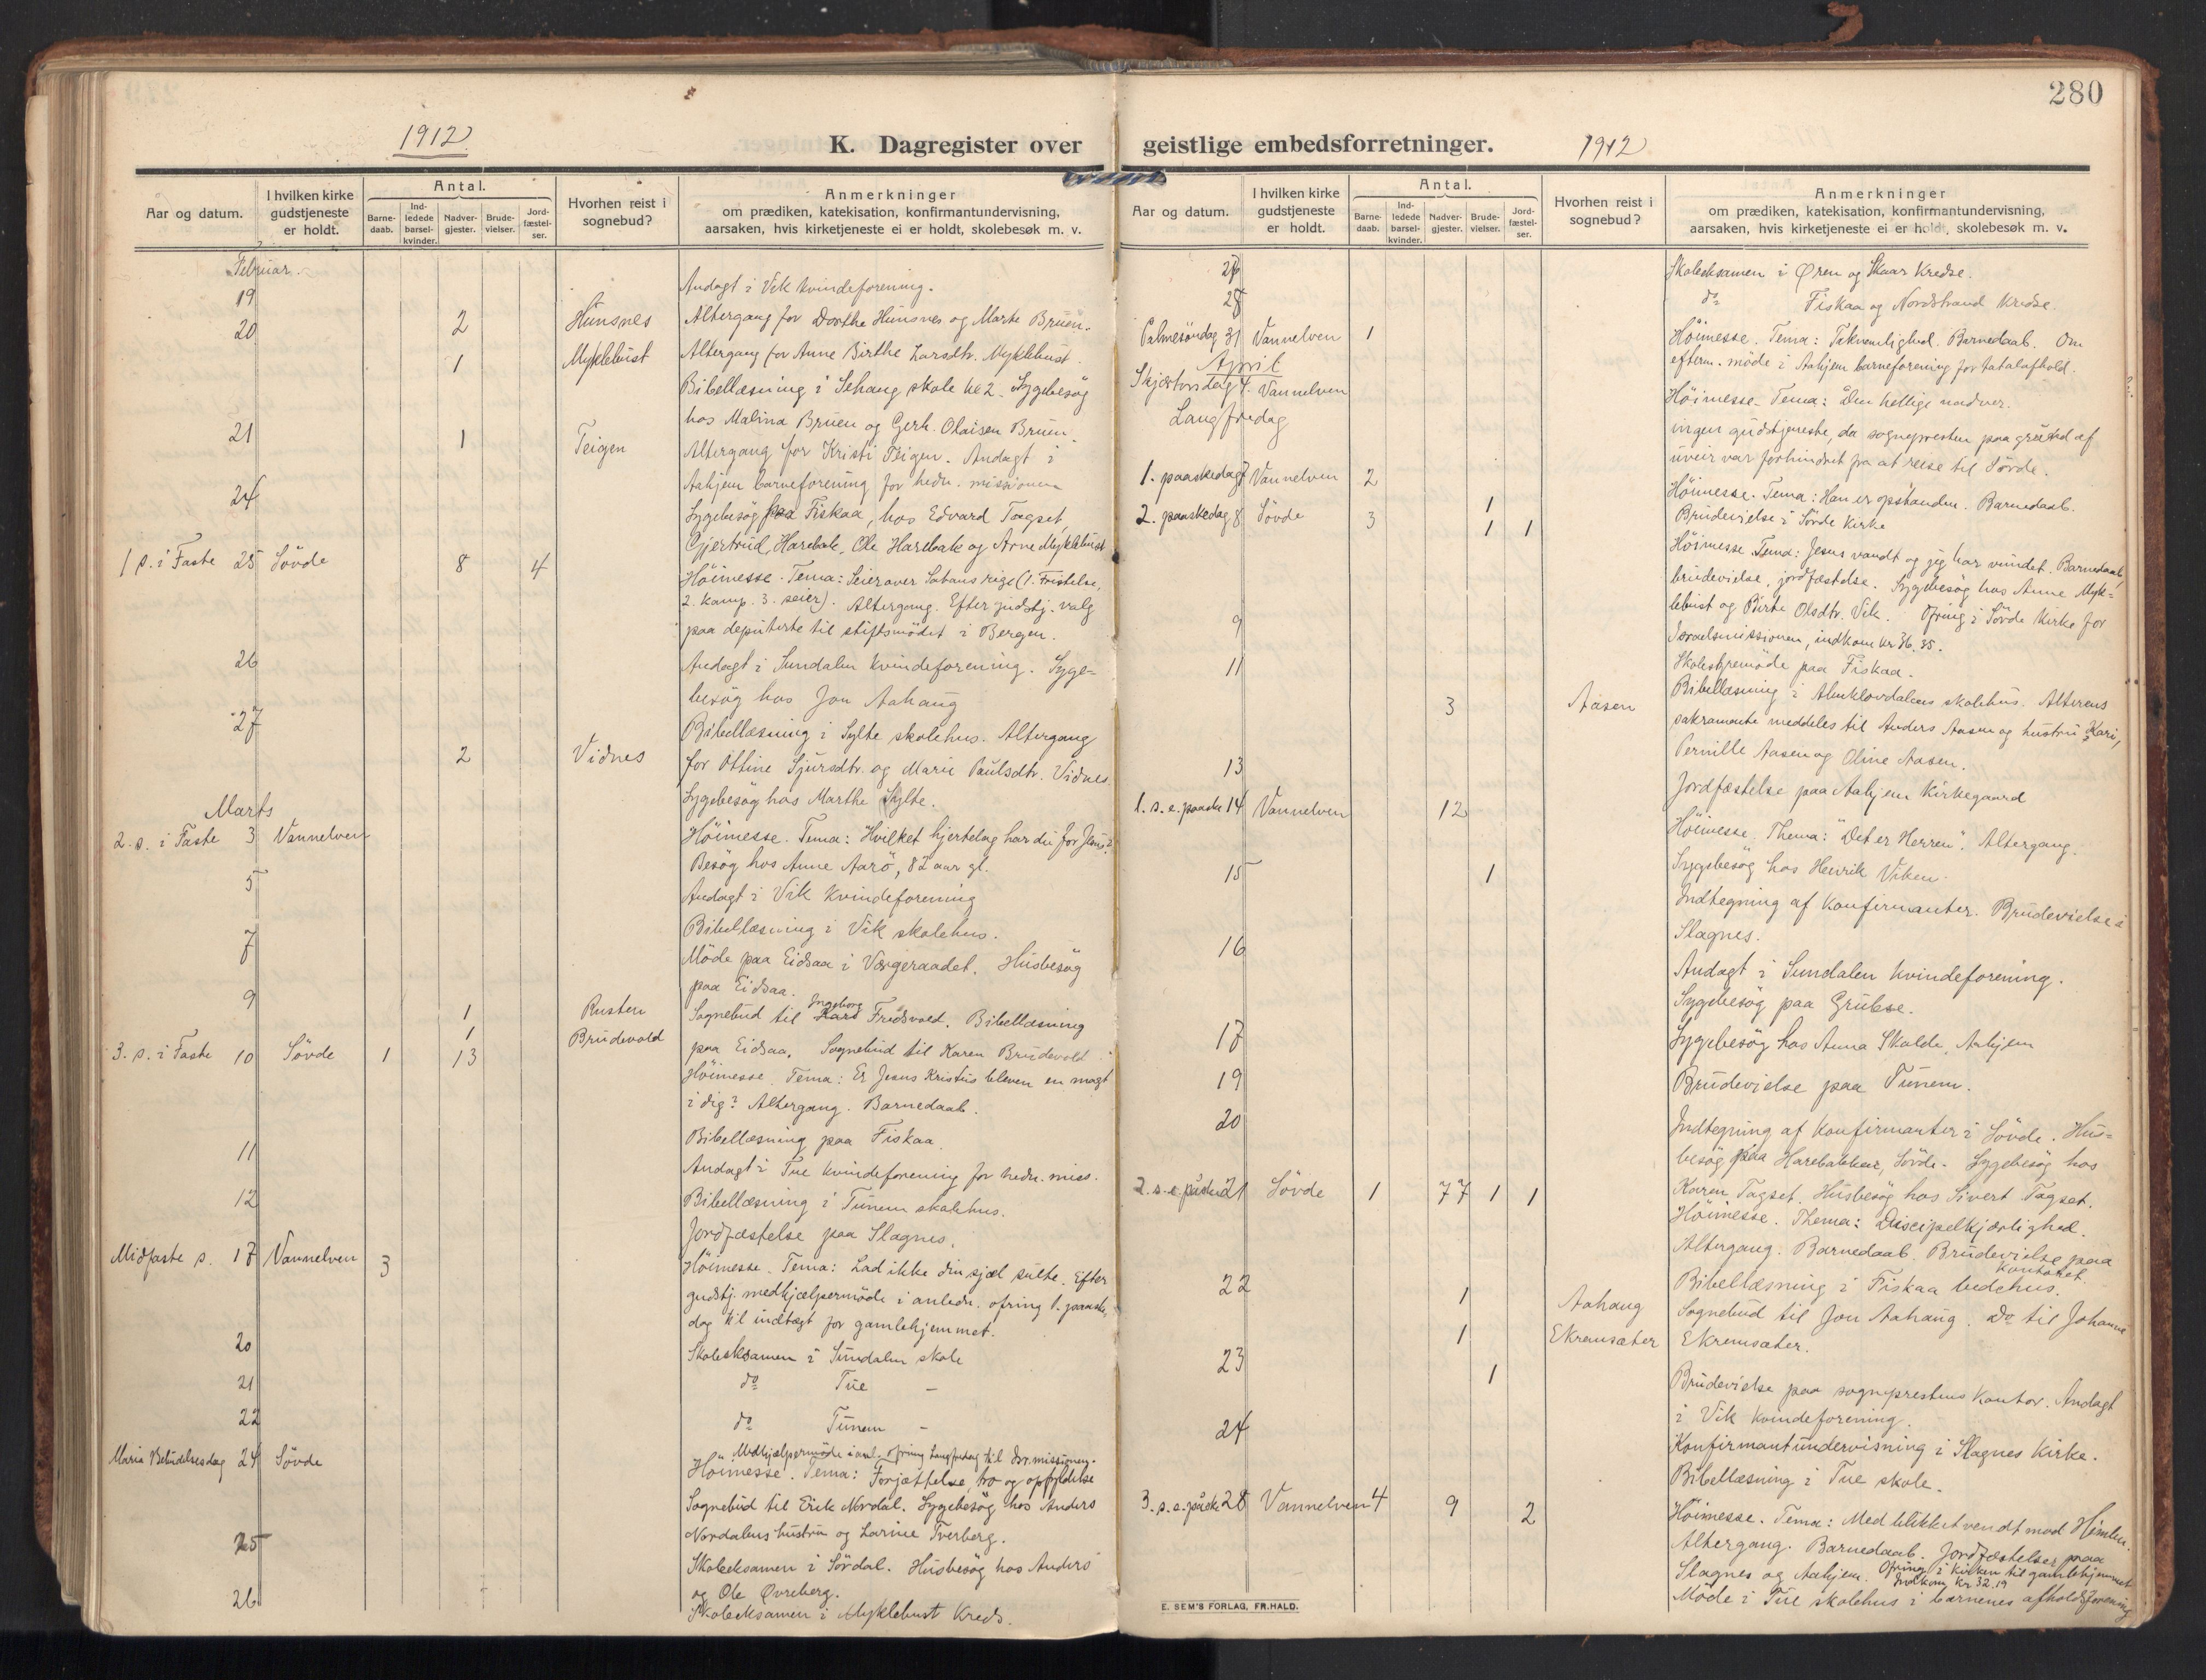 280
1912
K. Dagregister over
Antal.
Aar og datum.
I hvilken kirke gudstjeneste er holdt.
Barne-daab.
Ind-ledede barsel-kvinder.
Nadver-gjester.
Brude-vielser.
Jord-fæstel-ser.
Hvorhen reist i sognebud?
Anmerkninger
om prædiken, katekisation, konfirmantundervisning,
aarsaken, hvis kirketjeneste ei er holdt, skolebesøk m. v.
Februar.
19 Andagt i Vik kvindeforening.
20 2 Hunsnes Altergang for Dorthe Hunsnes og Marte Bruen.
1 Myklebust Altergang for Anne Birthe Larsdtr. Myklebust.
Bibellæsning i Sehaug skole kl 2. Sygebesøg
hos Malina Bruen og Gerh. Olaisen Bruen.
21 1 Teigen Altergang for Kristi Teigen. Andagt i
Aahjem barneforening for hedn. missionen
24 Sygebesøg paa Fiskaa, hos Edvard Tagset,
Gjertrud Harebak, Ole Harebak og Arne Myklebust
1 s. i Faste 25 Søvde 8 4 Höimesse. Tema: Seier over Satans rige (1. Fristelse,
2. kamp. 3. seier). Altergang. Efter gudstj. valg
paa deputerte til stiftsmödet i Bergen.
26 Andagt i Sundalen kvindeforening. Syge-
besøg hos Jon Aahaug
27 Bibellæsning i Sylte skolehus. Altergang
2 Vidnes for Ottine Sjursdtr. og Marie Paulsdtr. Vidnes.
Sygebesøg hos Marthe Sylte.
Marts
2. s. i Faste 3 Vannelven Höimesse. Tema: Hvilket hjertelag har du for Jesus?
Besøg hos Anne Aarö, 82 aar gl.
5 Andagt i Vik Kvindeforening
Bibellæsning i Vik skolehus.
7 Møde paa Eidsaa i Vergeraadet. Husbesøg
paa Eidsaa.
9 1 Rusten Sognebud til Ingeborg Fredsvold. Bibellæsning
1 Brudevold paa Eidsaa. Sognebud til Karen Brudevold
3. s. i Faste 10 Søvde 1 13 Höimesse. Tema: Er Jesus Kristus bleven en magt
i dig? Altergang. Barnedaab.
11 Bibellæsning paa Fiskaa.
Andagt i Tue kvindeforening for hedn. miss.
12 Bibellæsning i Tunem skolehus.
Jordfæstelse paa Slagnes.
Midfaste s. 17 Vannelven 3 Höimesse. Tema: Lad ikke din sjæl sulte. Efter
gudstj. medhjælpermöde i anledn. ofring 1. paaske,
dag til indtægt for gamlehjemmet.
20 Skoleeksamen i Sundalen skole
21 do Tue -
22 do Tunem -
Medhjælpermøde i anl. ofring Langfredag til Isr. missionen.
Maria Bebudelsesdag 24 Søvde Höimesse. Tema: Forjættelse, tro og opfyldelse
Sognebud til Erik Nordal. Sygebesøg hos Anders
Nordalens hustru og Larine Tverberg.
25 Skoleeksamen i Sördal. Husbesøg hos Anders
og Ole Øvreberg.
26 Skoleeksamen i Myklebust Kreds.
geistlige embedsforretninger.
1912
Antal.
Aar og datum.
I hvilken kirke gudstjeneste er holdt.
Barne-daab.
Ind-ledede barsel-kvinder.
Nadver-gjester.
Brude-vielser.
Jord-fæstel-ser.
Hvorhen reist i sognebud?
Anmerkninger
om prædiken, katekisation, konfirmantundervisning,
aarsaken, hvis kirketjeneste ei er holdt, skolebesøk m. v.
27 Skoleeksamen i Øren og Skaar Kredse.
28 do Fiskaa og Nordstrand Kredse.
Palmesöndag 31 Vannelven 1 Höimesse. Tema: Taknemlighed. Barnedaab. Om
efterm. møde i Aahjem barneforening for totalafhold.
April
Skjærtorsdag 4. Vannelven Höimesse. Tema: Den hellige nadver.
Langfredag ingen gudstjeneste, da sognepresten paa grund af
uveir var forhindret fra at reise til Søvde.
1. paaskedag 7 Vannelven 2 Höimesse. Tema: Han er opstanden. Barnedaab.
1 Brudevielse i Søvde Kirke
2. paaskedag 8 Søvde 3 1 1 Höimesse. Tema: Jesus vandt og jeg har vundet. Barnedaab,
brudevielse, jordfæstelse. Sygebesøg hos Anne Myk-
lebust og Birte Olsdtr. Vik. Ofring i Søvde Kirke for
Israelsmissionen, indkom kr 36.35.
9 Skolestyremöde paa Fiskaa.
11 Bibellæsning i Almklovdalens skolehus. Alterens
3 Aasen sakramente meddeles til Anders Aasen og hustru Kari,
Pernille Aasen og Oline Aasen.
13 Jordfæstelse paa Aahjem Kirkegaard
1. s. e. paaske 14 Vannelven 12 Höimesse. Thema: "Det er Herren". Altergang.
Sygebesøg hos Henrik Viken.
15 1 Indtegning af Konfirmanter. Brudevielse i
Slagnes.
16 Andagt i Sundalen kvindeforening.
Sygebesøg paa Grubse.
17 Sygebesøg hos Anna Skolde, Aahjem
19 Brudevielse paa Tunem.
20 Indtegning af Konfirmanter i Søvde. Hus-
besøg paa Harebakken, Søvde. Sygebesøg hos
Karen Tagset. Husbesøg hos Sivert Tagset.
2. s. e. påske 21 Søvde 1 77 1 1 Höimesse. Thema: Discipelkjærlighed.
Altergang. Barnedaab. Brudevielse paa
kontoret.
22 Bibellæsning i Fiskaa bedehus.
1 Aahaug Sognebud til Jon Aahaug. Do til Johanne
1 Ekremsæter Ekremsæter.
23 1 Brudevielse paa sogneprestens Kontor. Andagt
i Vik kvindeforening.
24 Konfirmantundervisning i Slagnes Kirke.
Bibellæsning i Tue skole.
3. s. e. påske 28 Vannelven 4 9 2 Höimesse. Tema: Med blikket vendt mod Himlen.
Altergang. Barnedaab. Jordfæstelser paa
Slagnes og Aahjem. Ofring i kirken til gamlehjemmet
Indkom kr. 32.19
Møde i Tue skolehus i barnenes afholdsforening
E. SEM'S FORLAG, FR.HALD.